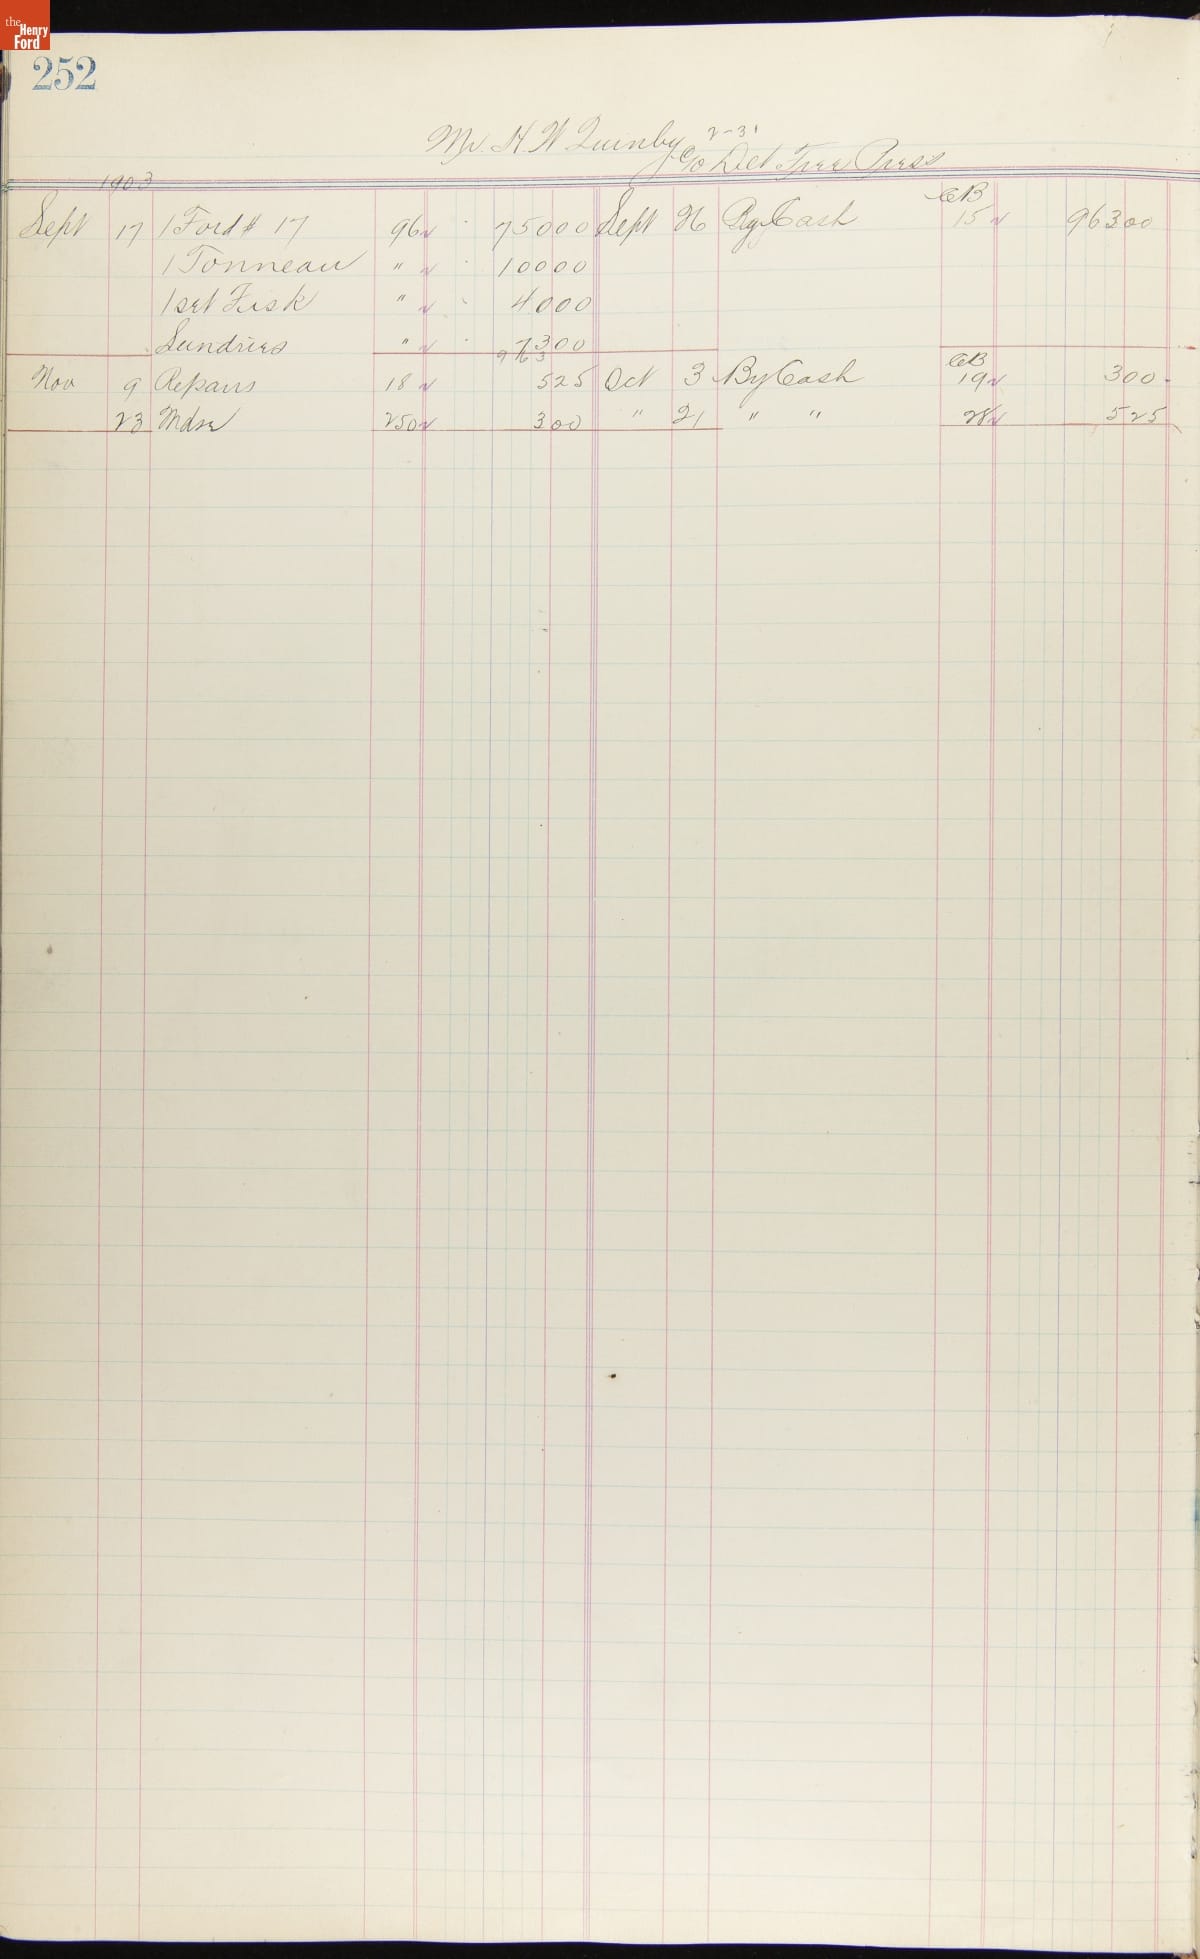 the Henry Ford
252
Mr. H W Quinby 2-31
c/o Det Free Press
1903
Sept 17 1 Ford # 17 96 ✓ 75000 Sept 26 By Cash CB 15 ✓ 96300
1 Tonneau " ✓ 10000
1 set Fisk " ✓ 4000
Sundries " ✓ 7300
963
Nov 9 Repairs 18 ✓ 525 Oct 3 By Cash CB 19 ✓ 300
23 Mdse 250 ✓ 300 " 21 " " 28 ✓ 525